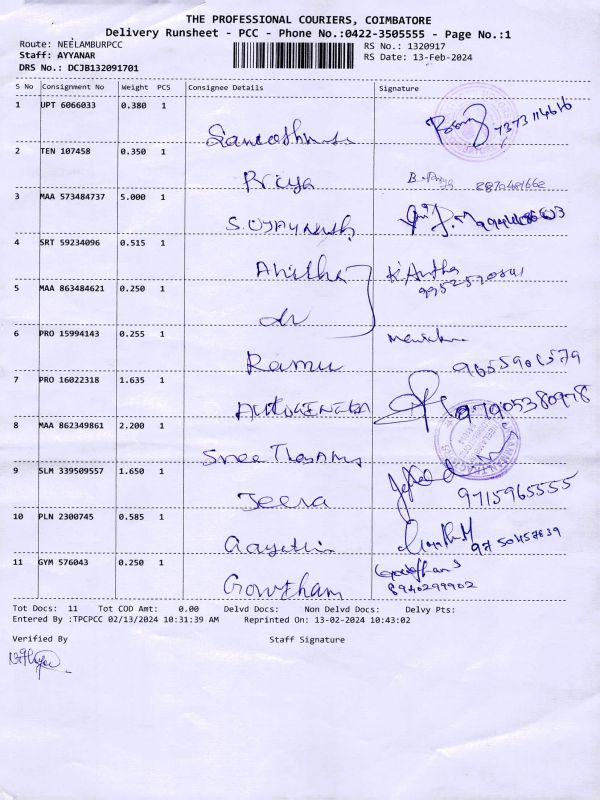 THE PROFESSIONAL COURIERS, COIMBATORE
Delivery Runsheet - PCC - Phone No.:0422-3505555 - Page No.:1
Route: NEELAMBURPCC RS No.: 1320917
Staff: AYYANAR RS Date: 13-Feb-2024
DRS No.: DCJB132091701
S No Consignment No Weight PCS Consignee Details Signature
1 UPT 6066033 0.380 1
7373114616
2 TEN 107458 0.350 1
Priya
3 MAA 573484737 5.000 1
4 SRT 59234096 0.515 1
Anitha
5 MAA 863484621 0.250 1
6 PRO 15994143 0.255 1
Ramu
7 PRO 16022318 1.635 1
97905380978
8 MAA 862349861 2.200 1
Sree
9 SLM 339509557 1.650 1
Jeera 9715965555
10 PLN 2300745 0.585 1
11 GYM 576043 0.250 1
Gowtham 8940299902
Tot Docs: 11 Tot COD Amt: 0.00 Delvd Docs: Non Delvd Docs: Delvy Pts:
Entered By :TPCPCC 02/13/2024 10:31:39 AM Reprinted On: 13-02-2024 10:43:02
Verified By Staff Signature